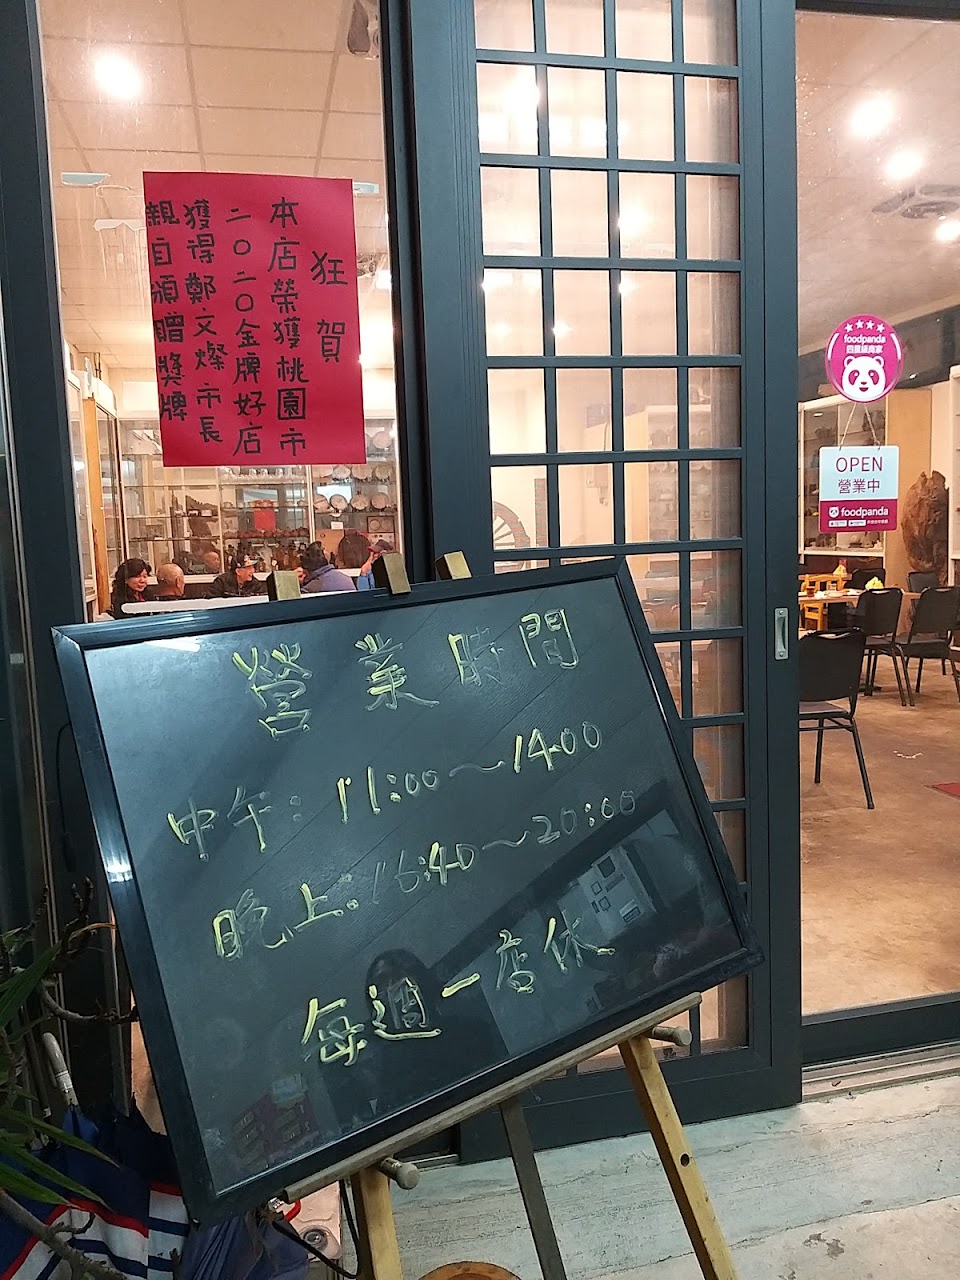 狂賀
本店榮獲桃園市
二〇二〇金牌好店
獲得鄭文燦市長
親自頒贈獎牌
foodpanda
四星級商家
OPEN
營業中
foodpanda
營業時間
中午：11:00～14:00
晚上：16:40～20:00
每週一店休